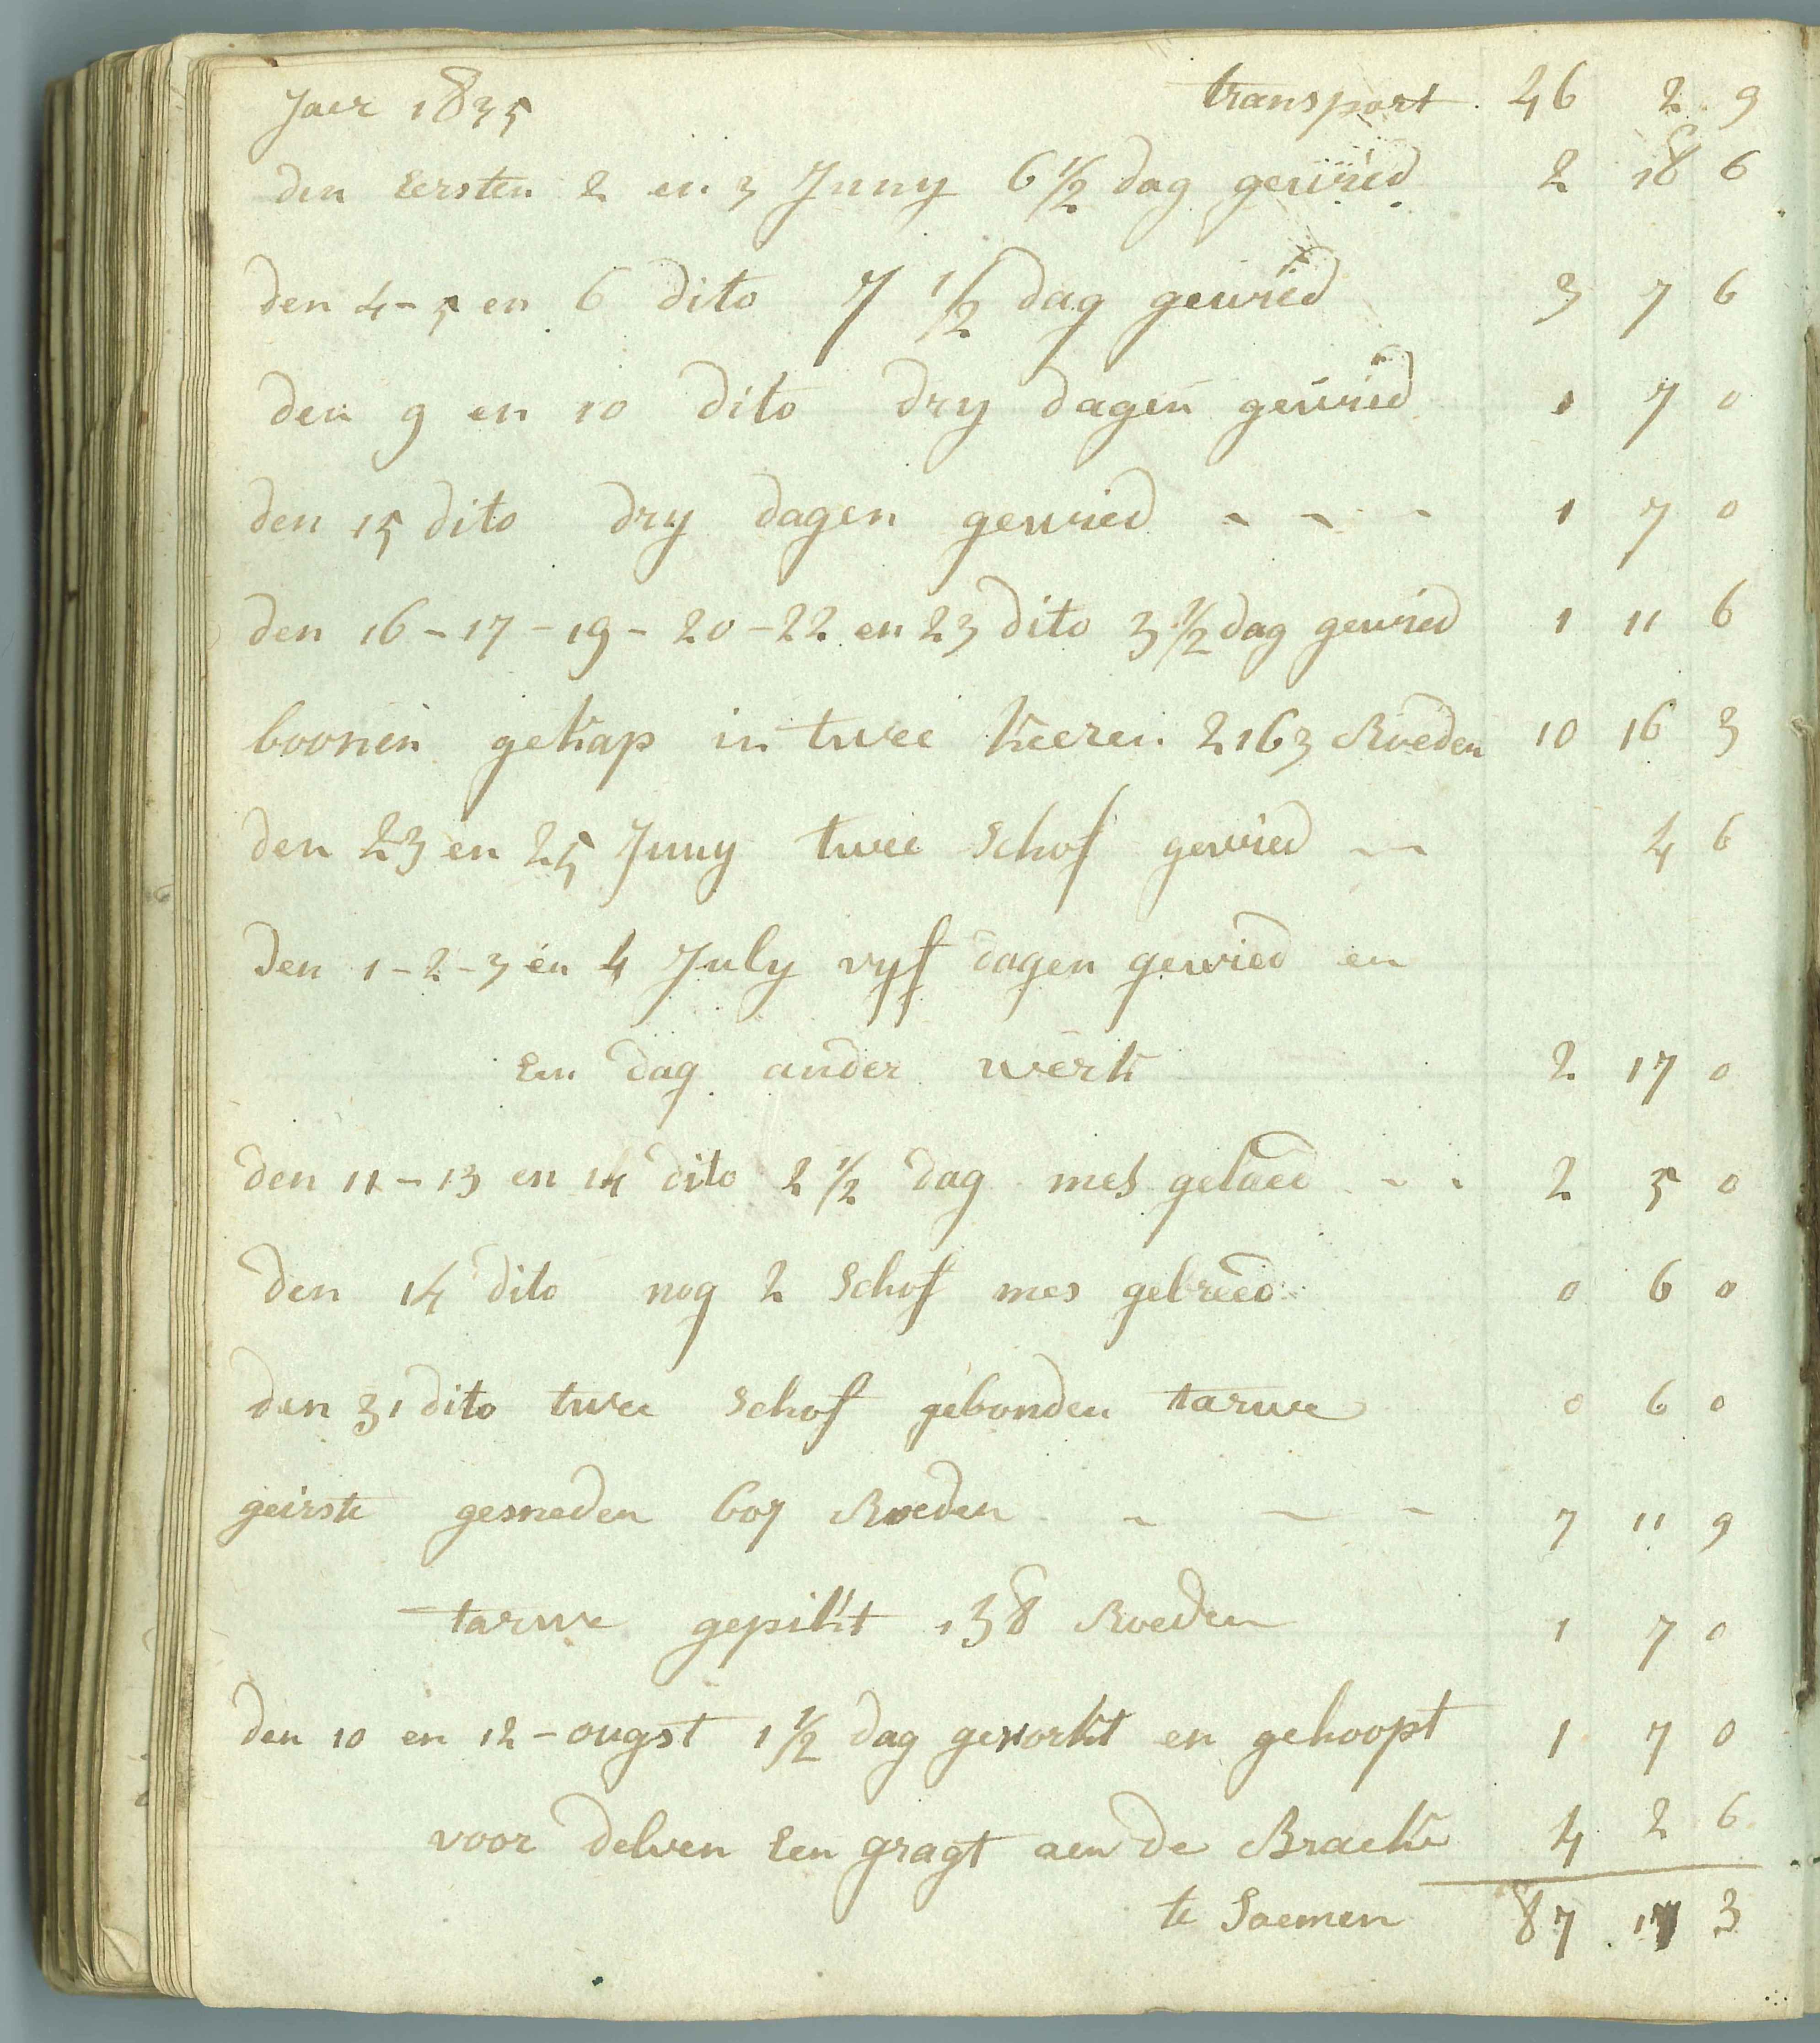 Jaer 1835 transport 46 2 9
den Eersten 2 en 3 Juny 6 1/2 dag gewied 2 18 6
den 4-5 en 6 dito 7 1/2 dag gewied 3 7 6
den 9 en 10 dito dry dagen gewied 1 7 0
den 15 dito dry dagen gewied - - - 1 7 0
den 16-17-19-20-22 en 23 dito 3 1/2 dag gewied 1 11 6
boonen gekap in twee keeren 2163 Roeden 10 16 3
den 23 en 25 Juny twee schof gewied -- 4 6
den 1-2-3 en 4 July vyf dagen gewied en
Een dag ander werk 2 17 0
den 11-13 en 14 dito 2 1/2 dag mes gelaed - - 2 5 0
den 14 dito nog 2 Schof mes gebreed 0 6 0
den 31 dito twee schof gebonden tarwe 0 6 0
geirste gesneden 607 Roeden - - - 7 11 9
tarwe gepikt 138 Roeden 1 7 0
den 10 en 12-ougst 1 1/2 dag gevorkt en gehoopt 1 7 0
voor delven Een gragt aen de Bracke 4 2 6
te Saemen 87 17 3